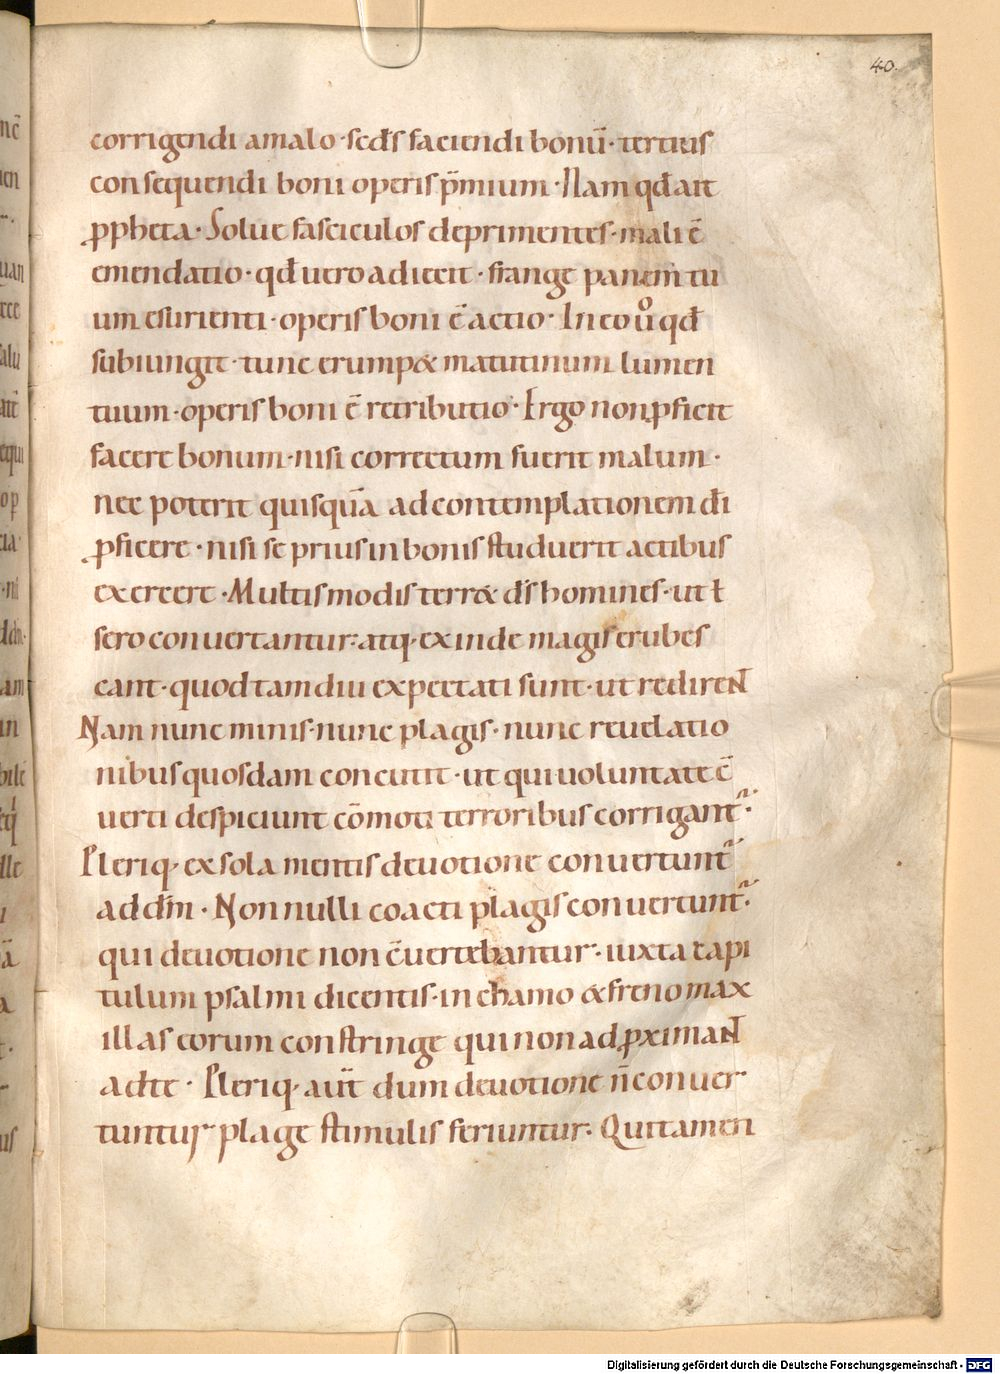 40.
corrigendi amalo · scd̄s faciendi bonū · tertius
consequendi boni operis p̄mium · Nam qđ ait
ꝓpheta · Solue fasciculos deprimentes · mali ē
emendatio · qđ uero adiecit · frange panem tu
um esurienti · operis boni ē actio · In eo ůo qđ
subiungit · tunc erump& matutinum lumen
tuum · operis boni ē retributio · Ergo non ꝓficit
facere bonum · nisi correctum fuerit malum ·
nec poterit quisquā ad contemplationem dī
ꝓficere · nisi se prius in bonis studuerit actibus
exercere · Multis modis terr& ds̄ homines · ut ł
sero conuertantur · atq· exinde magis erubes
cant · quod tam diu expectati sunt · ut redirent
Nam nunc minis · nunc plagis · nunc reuelatio
nibus quosdam concutit · ut qui uoluntate c̄
uerti despiciunt cōmoti terroribus corrigant᷑ ·
Pleriq· ex sola mentis deuotione conuertunt᷑
ad dm̄ · Non nulli coacti plagis conuertunt᷑ ·
qui deuotione non c̄uertebantur · iuxta capi
tulum psalmi dicentis · in chamo & freno max
illas eorum constringe qui non ad ꝓximant
ad te · Pleriq· aut̄ dum deuotione n̄ conuer
tuntur plage stimulis feriuntur · Qui tamen
Digitalisierung gefördert durch die Deutsche Forschungsgemeinschaft · DFG